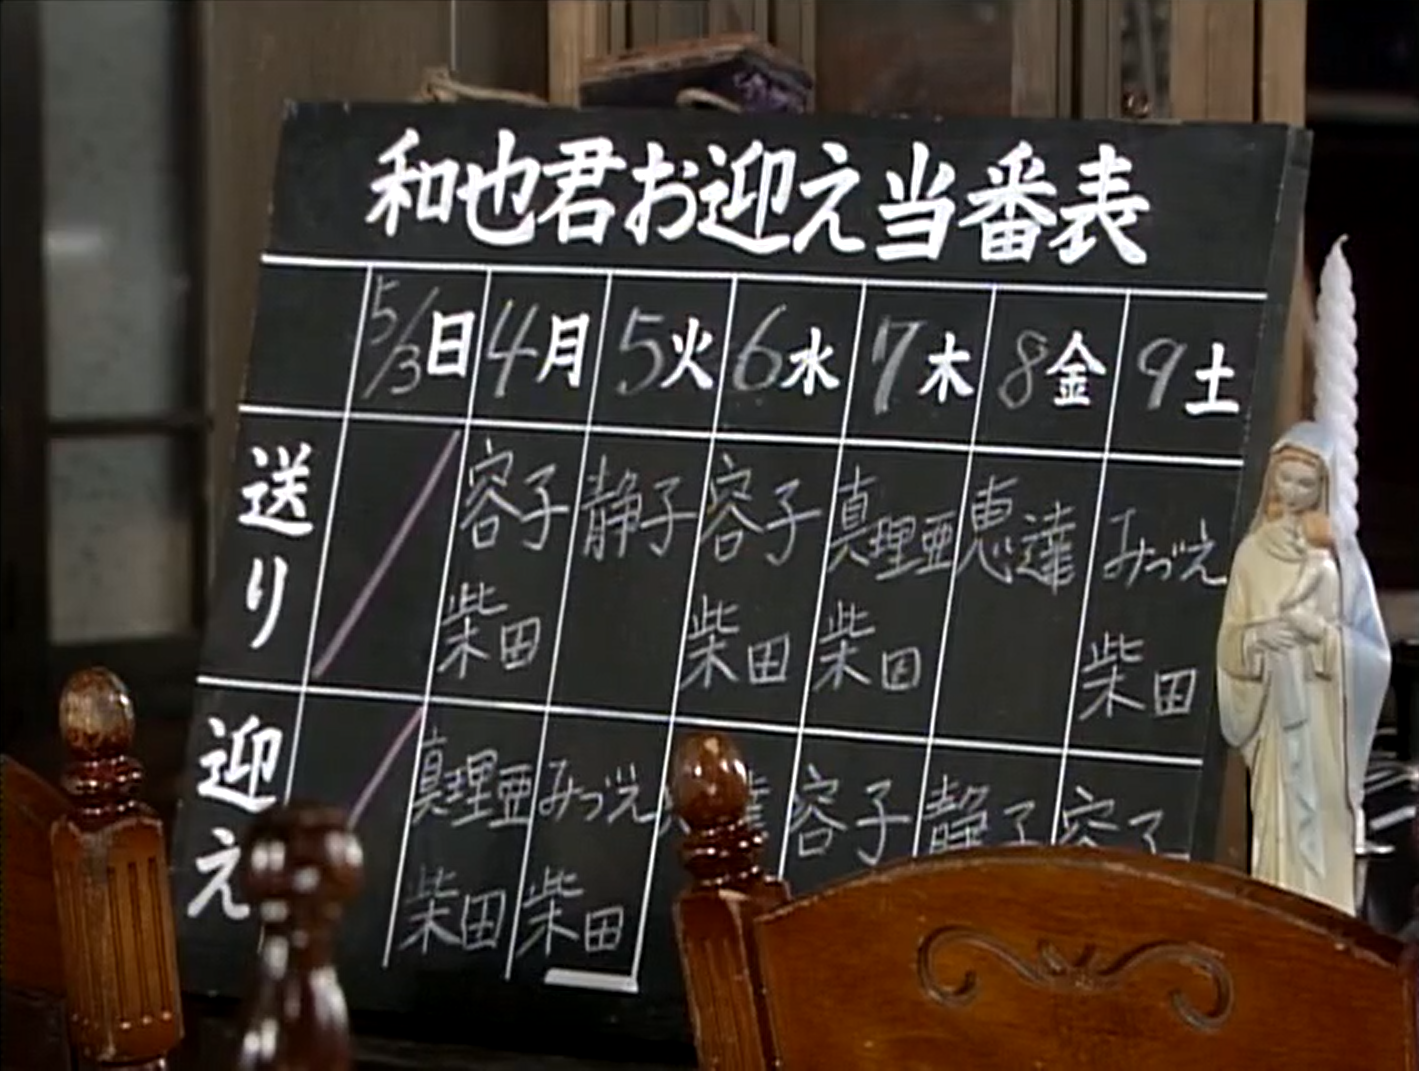 和也君お迎え当番表
5/3日 4月 5火 6水 7木 8金 9土
送り 容子 静子 容子 真理亜 恵達 みづえ
柴田 柴田 柴田 柴田
迎え 真理亜 みづえ 容子 静子 容子
柴田 柴田